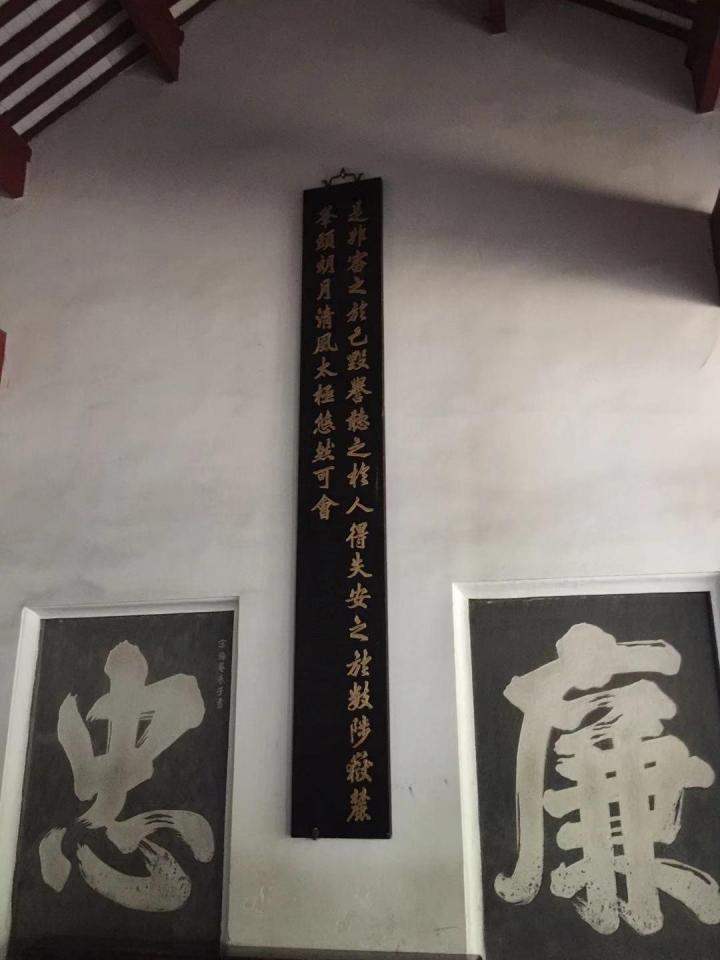 廉
是非審之於己毀譽聽之於人得失安之於數陟嶽麓
峯頭朗月清風太極悠然可會
宋晦菴朱子書
忠